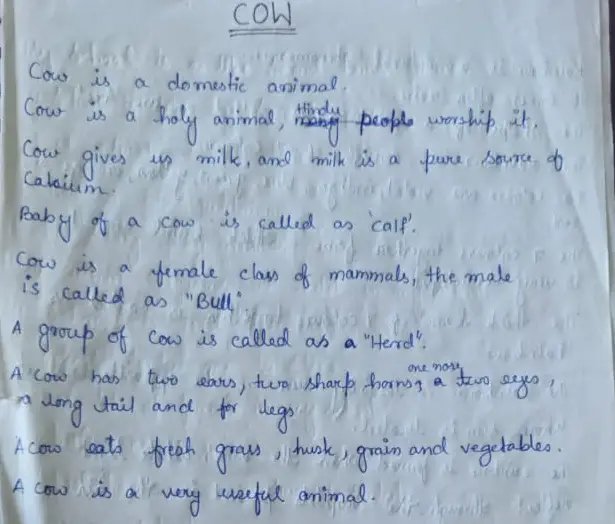 COW
Cow is a domestic animal.
Cow is a holy animal, Hindu people worship it.
Cow gives us milk, and milk is a pure source of
Calcium.
Baby of a cow is called as 'calf'.
Cow is a female class of mammals, the male
is called as "Bull".
A group of cow is called as a "Herd".
A cow has two ears, two sharp horns, one nose, two eyes,
a long tail and for legs
A cow eats fresh grass, husk, grain and vegetables.
A cow is a very useful animal.